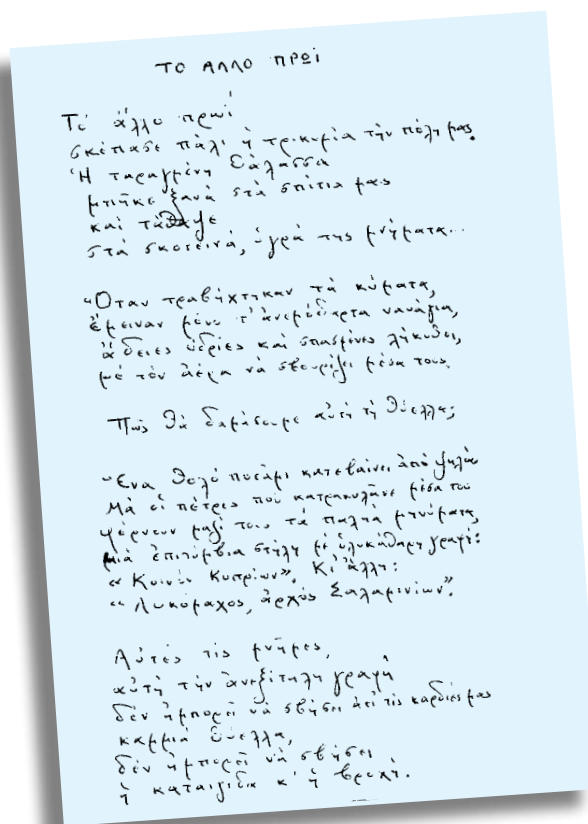 ΤΟ ΑΛΛΟ ΠΡΩΪ
Τὸ ἄλλο πρωί
σκέπασε πάλι ἡ τρικυμία τὴν πόλη μας.
Ἡ ταραγμένη θάλασσα
μπῆκε ξανὰ στὰ σπίτια μας
καὶ τἄθαψε
στὰ σκοτεινά, ὑγρά της μνήματα...
Ὅταν τραβήχτηκαν τὰ κύματα,
ἔμειναν μόνο τ' ἀνεμόδαρτα ναυάγια,
ἄδειες ὑδρίες καὶ σπασμένες λήκυθοι,
μὲ τὸν ἀέρα νὰ σβουρίζει μέσα τους.
Πῶς θὰ δαμάσουμε αὐτὴ τὴ θύελλα;
Ἕνα θολὸ ποτάμι κατεβαίνει ἀπὸ ψηλὰ
Μὰ οἱ πέτρες ποὺ κατρακυλᾶνε μέσα του
φέρνουν μαζί τους τὰ παληὰ μηνύματα,
μιὰ ἐπιτύμβια στήλη μὲ ὁλοκάθαρη γραφή:
«Κοινὸν Κυπρίων». Κι' ἄλλη:
«Λυκόμαχος, ἀρχὸς Σαλαμινίων».
Αὐτὲς τὶς μνῆμες,
αὐτὴ τὴν ἀνεξίτηλη γραφὴ
δὲν ἠμπορεῖ νὰ σβήσει ἀπὸ τὶς καρδιές μας
καμμιὰ θύελλα,
δὲν ἠμπορεῖ νὰ σβήσει
ἡ καταιγίδα κ' ἡ βροχή.